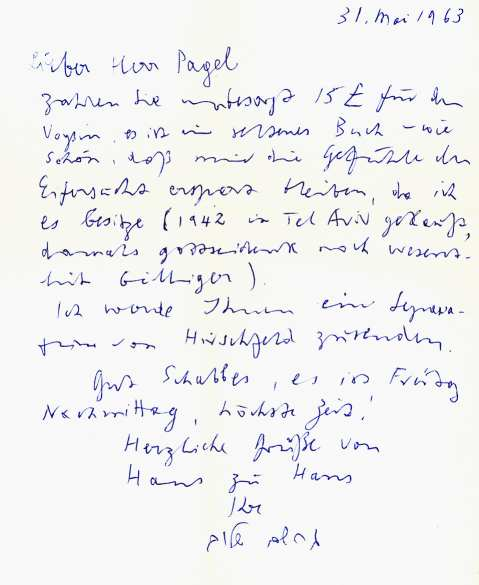 31. Mai 1963
Lieber Herr Pagel
Zahlen Sie unbesorgt 15 £ für den
Voysin, es ist ein seltenes Buch – wie
schön, daß mir die Gefühle der
Eifersucht erspart bleiben, da ich
es besitze (1942 in Tel Aviv gekauft,
damals gottseidank noch wesent-
lich billiger).
Ich werde Ihnen ein
von Hirschfeld zusenden.
Gut Schabbes, es ist Freitag
Nachmittag, höchste Zeit!
Herzliche Grüße von
Haus zu Haus
Ihr